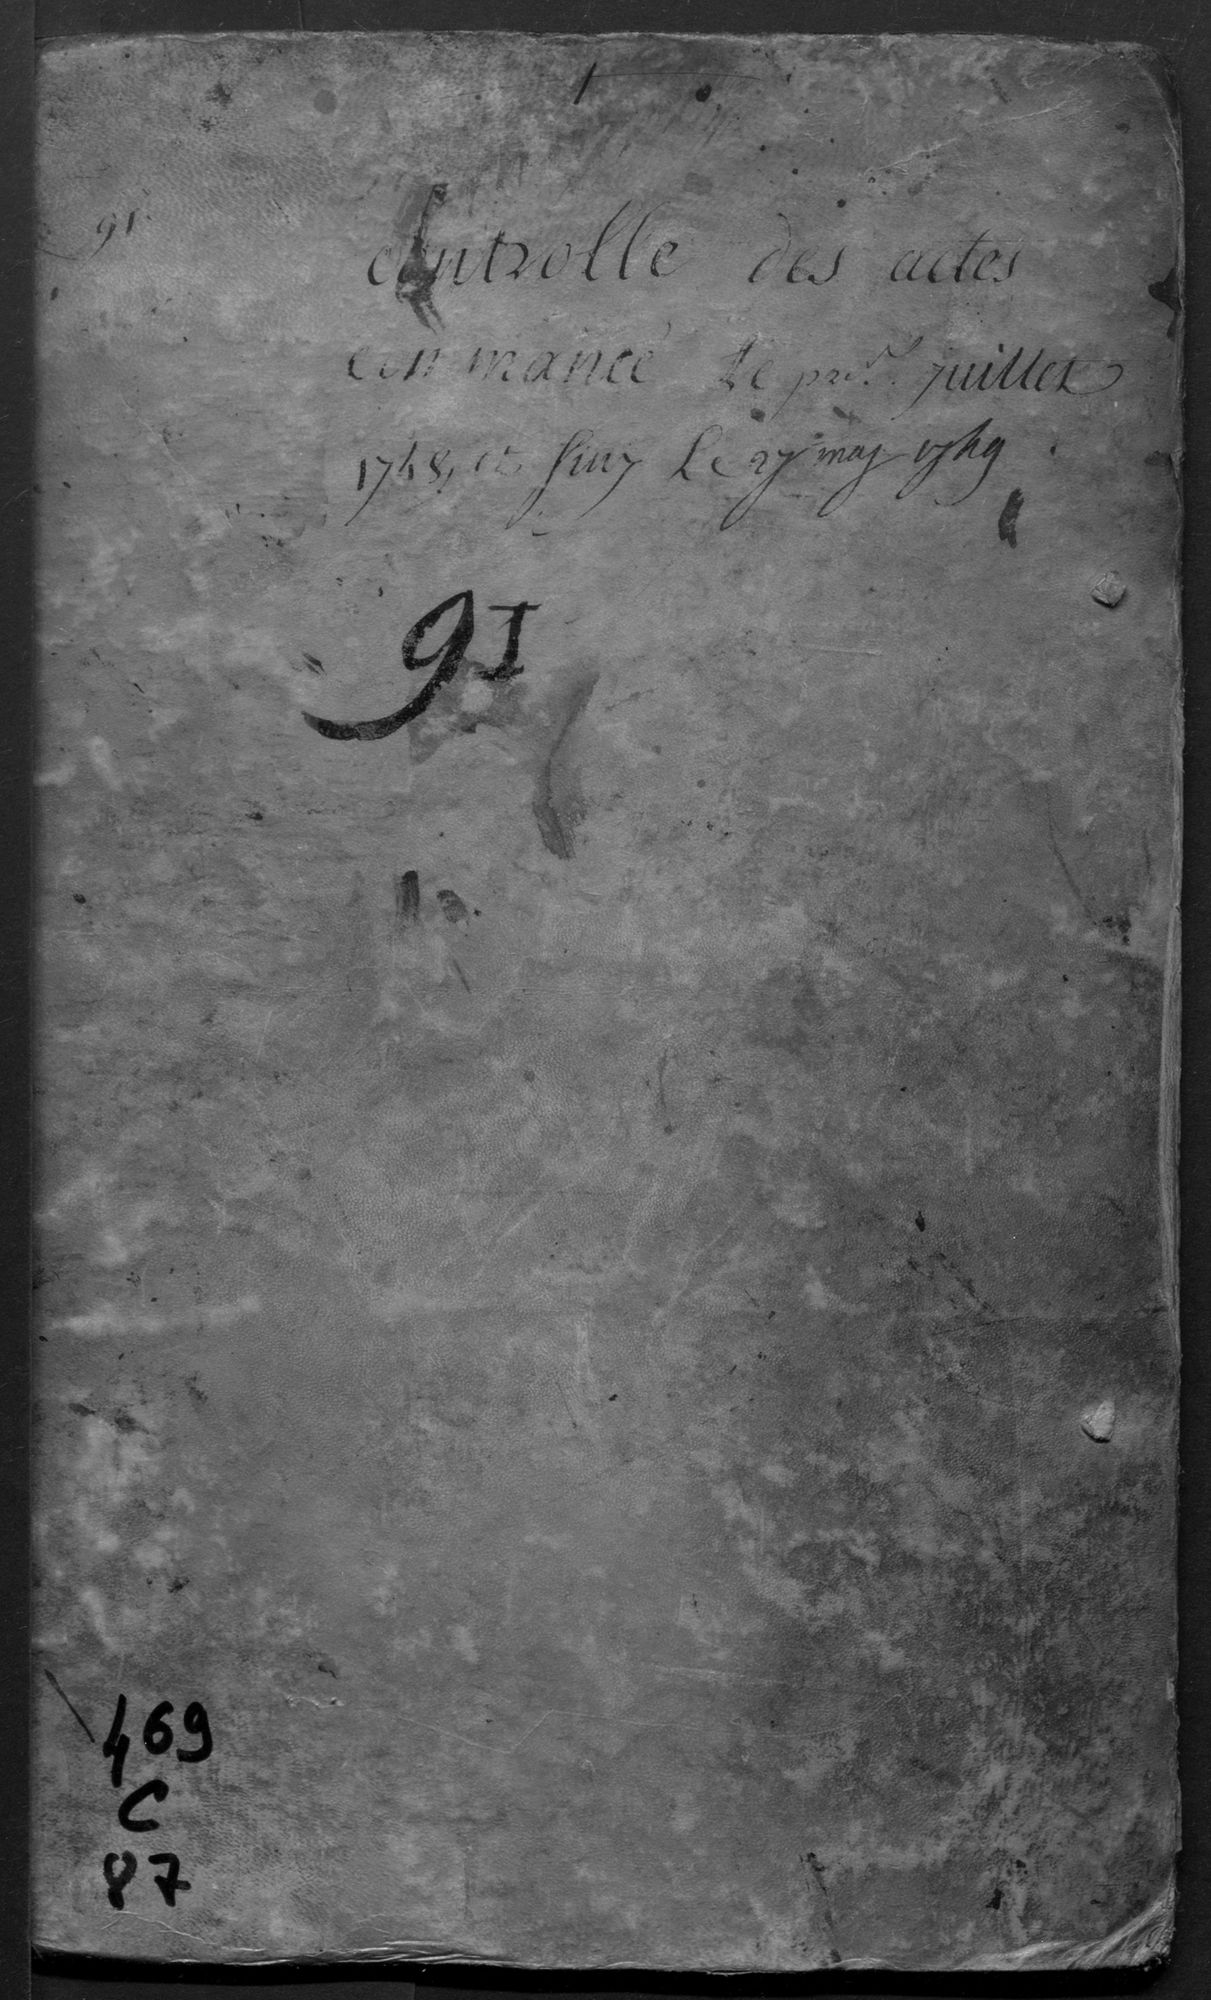 91
controlle des actes
commancé Le pr.er juillet
1748, et finy Le 27 may 1749
91
469
C
87